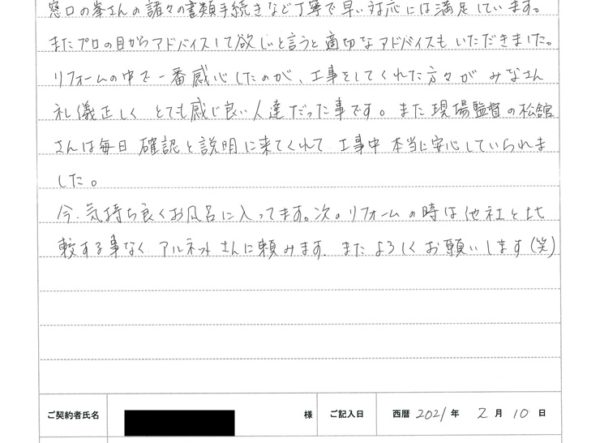 窓口の峯さんの諸々の書類手続きなど丁寧で早い対応には満足しています。
またプロの目からアドバイスして欲しいと言うと適切なアドバイスもいただきました。
リフォームの中で一番感心したのが、工事をしてくれた方々がみなさん
礼儀正しく とても感じ良い人達だった事です。また現場監督の松舘
さんは毎日 確認と説明に来てくれて 工事中 本当に安心していられま
した。
今、気持ち良くお風呂に入ってます。次のリフォームの時は他社と比
較する事なく アルネットさんに頼みます。またよろしくお願いします(笑)
ご契約者氏名 様 ご記入日 西暦 2021年 2月10日